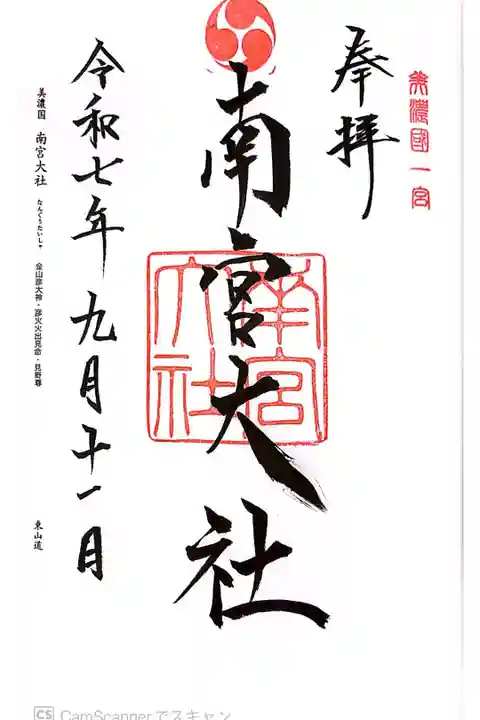 美濃國一宮
奉拝
南宮大社
南宮大社
令和七年九月十一日
美濃国 南宮大社 なんぐうたいしゃ 金山彦大神・彦火火出見命・見野尊
東山道
CS CamScannerでスキャン